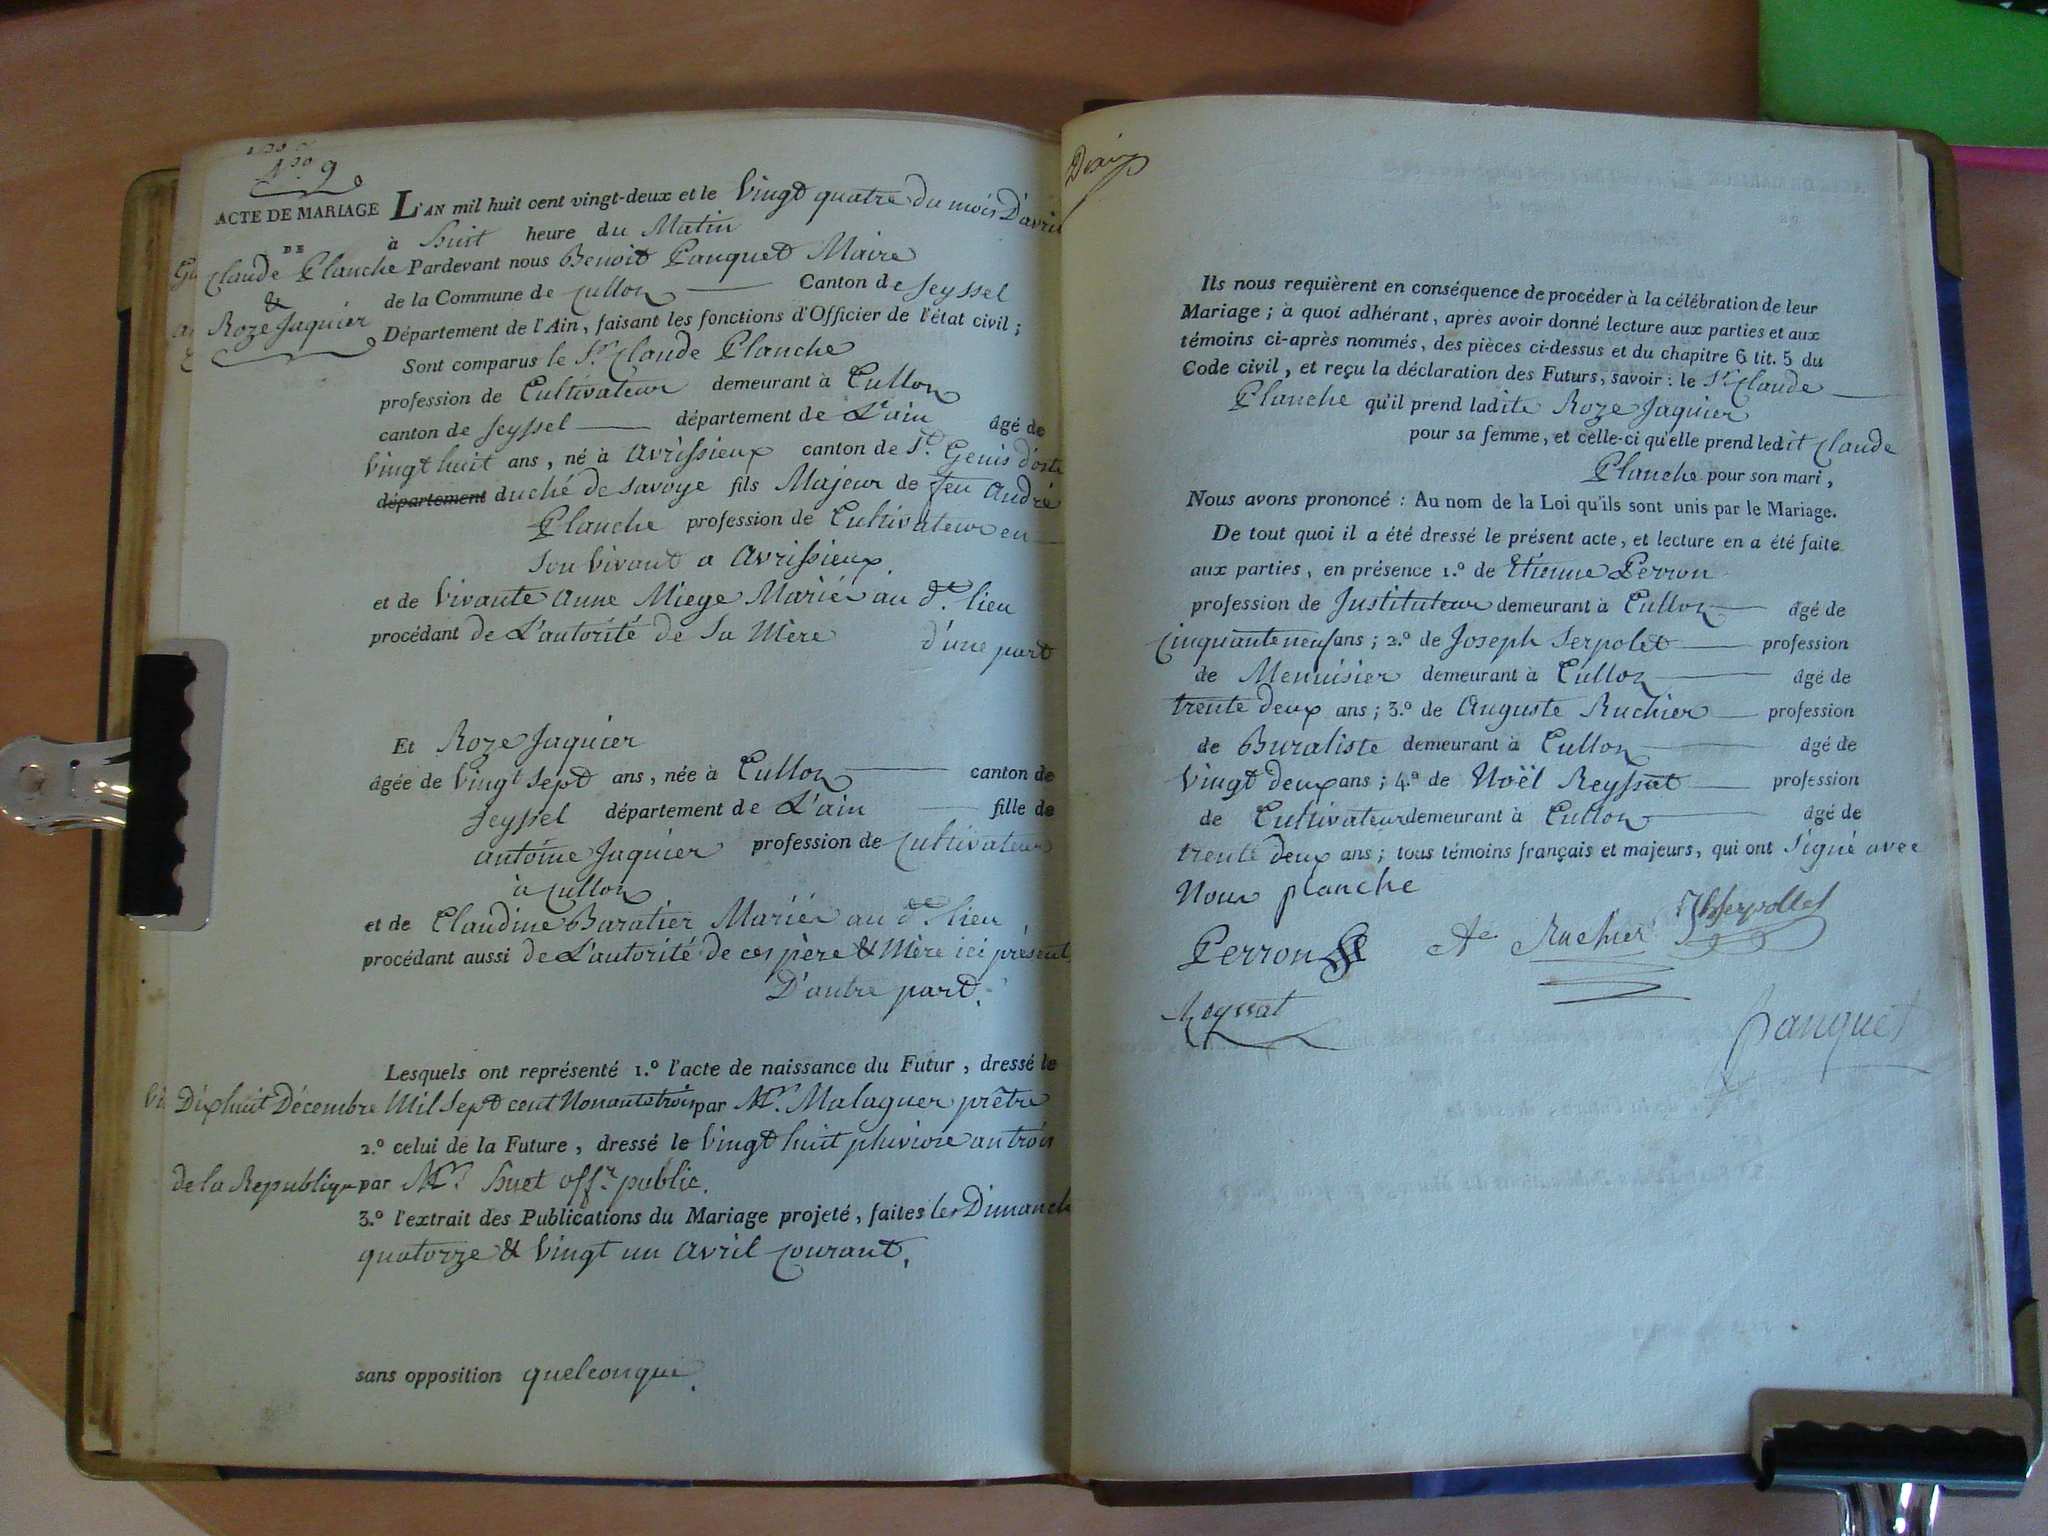 N.º 9
ACTE DE MARIAGE
DE
Claude Planche
&
Roze Jaquier
L'AN mil huit cent vingt-deux et le Vingt quatre du mois D'avril
à huit heure du Matin
Pardevant nous Benoit Panquet Maire
de la Commune de Culloz — Canton de Seyssel
Département de l'Ain, faisant les fonctions d'Officier de l'état civil ;
Sont comparus le Sr. Claude Planche
profession de Cultivateur demeurant à Culloz
canton de Seyssel — département de L'ain âgé de
Vingt huit ans, né à Avrissieux canton de St. Genis d'oste
département duché de Savoye fils Majeur de feu André
Planche profession de Cultivateur en
Son vivant a Avrissieux.
et de Vivante Anne Miege Mariés au dt. lieu
procédant de L'autorité de Sa Mère d'une part
Et Roze Jaquier
âgée de Vingt Sept ans, née à Culloz — canton de
Seyssel département de L'ain — fille de
antoine Jaquier profession de Cultivateur
à Culloz
et de Claudine Baratier Mariés au dt. lieu
procédant aussi de L'autorité de ces père & Mère ici présents
D'autre part.
Lesquels ont représenté 1.º l'acte de naissance du Futur, dressé le
Dixhuit Décembre Mil Sept cent Nonantetrois par Mr. Malaguer prêtre
2.º celui de la Future, dressé le Vingt huit pluviose an trois
de la Republique par Mr. huet offr. public.
3.º l'extrait des Publications du Mariage projeté, faites les Dimanche
quatorze & Vingt un avril courant.
sans opposition quelconque.
Ils nous requièrent en conséquence de procéder à la célébration de leur
Mariage ; à quoi adhérant, après avoir donné lecture aux parties et aux
témoins ci-après nommés, des pièces ci-dessus et du chapitre 6 tit. 5 du
Code civil, et reçu la déclaration des Futurs, savoir : le Sr. Claude —
Planche qu'il prend ladite Roze Jaquier
pour sa femme, et celle-ci qu'elle prend ledit Claude
Planche pour son mari,
Nous avons prononcé : Au nom de la Loi qu'ils sont unis par le Mariage.
De tout quoi il a été dressé le présent acte, et lecture en a été faite
aux parties, en présence 1.º de Etienne Perron
profession de Instituteur demeurant à Culloz — âgé de
Cinquante neuf ans ; 2.º de Joseph Serpolet — profession
de Menuisier demeurant à Culloz — âgé de
trente deux ans ; 3.º de Auguste Ruchier — profession
de Buraliste demeurant à Culloz — âgé de
Vingt deux ans ; 4.º de Noël Reyssat — profession
de Cultivateur demeurant à Culloz — âgé de
trente deux ans ; tous témoins français et majeurs, qui ont Signé avec
Nous planche
Perron Ate Ruchier Jh Serpollet
Reyssat
Panquet